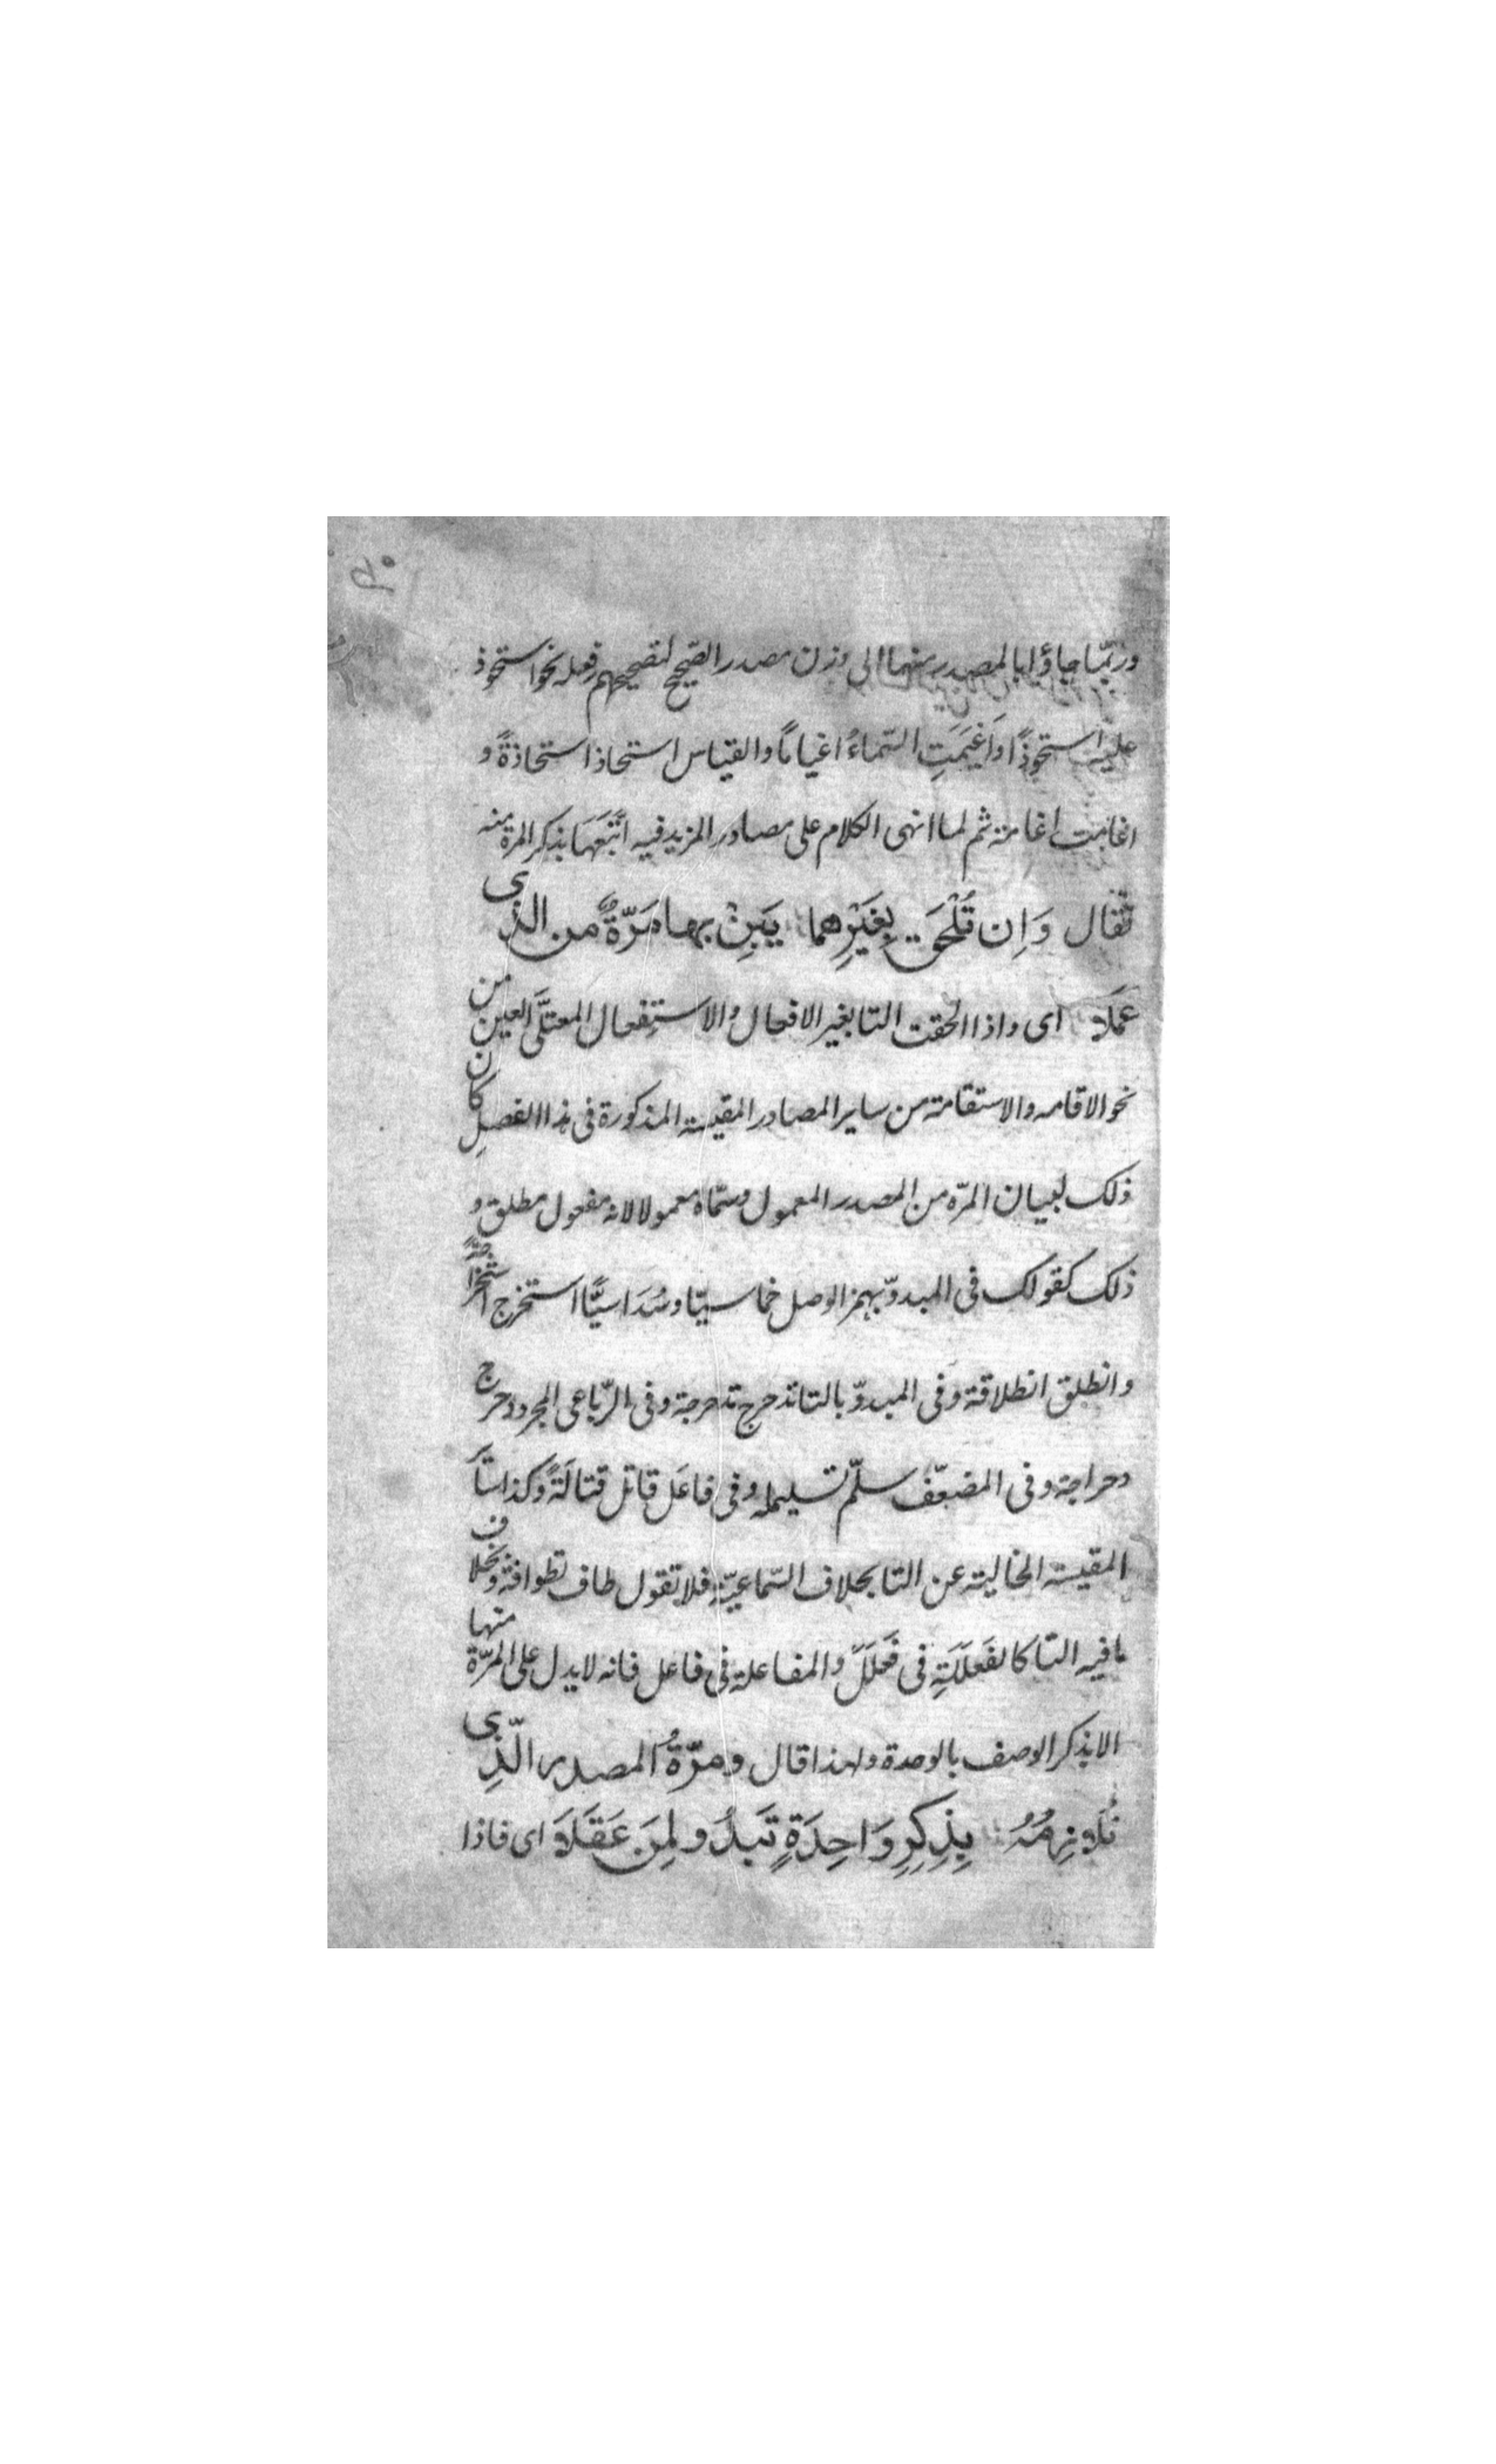 وربّما جاؤا بالمصدر منهما الى وزن مصدر الصّحيح لتصحيحهم فِعله نحو استحوذ
عليه استحوذًا واَغْيَمَتِ السّماءُ اغيامًا والقياس استحاذ استحاذةً و
اغامت اغامة ثم لما انهى الكلام على مصادر المزيد فيه اتْبَعَهَا بذكر المرة منه
فقال وَاِن تُلْحَقَ بِغَيْرِهما يَبِنْ بها مَرّةٌ من الذى
عَمَلا اى واذا الحقت التا بغير الافعال والاستفعال المعتلَّى العين من
نحو الاقامه والاستقامة من ساير المصادر المقيسة المذكورة فى هذا الفصلِ كان
ذلك لبيان المرّه من المصدر المعمول وسمّاه معمولا لانه مفعول مطلق و
ذلك كقولك فى المبدوّ بهمز الوصل خماسيّا وسُدَاسيًّا استخرج استخراجةً
وانطلق انطلاقة وفى المبدوّ بالتا تدحرج تدحرجة وفى الرّباعى المجرد دحرج
دحراجة وفى المضعّف سلّم تسليمة وفى فاعَل قاتل قتالَةً وكذا ساير
المقيسة الخالية عن التا بخلاف السّماعيّةِ فلا تقول طاف تطوافة وبخلاف
ما فيه التا كالفَعلَلَةِ فى فَعْلَلَ والمفاعلة فى فاعل فانه لا يدل على المرّة منها
الا بذكر الوصف بالوحدة ولهذا قال ومرّةُ المصدر الّذِى
تُلَازِمُهُ بِذِكرِ وَاحِدَةٍ تَبدُو لِمَنَ عَقَلَا اى فاذا